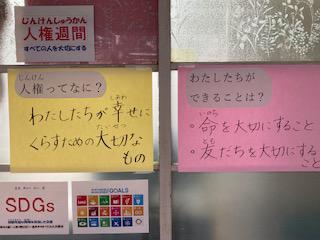 じんけんしゅうかん
人権週間
すべての人を大切にする
じんけん
人権ってなに？
しあわ
わたしたちが幸せに
たいせつ
くらすための大切な
もの
わたしたちが
できることは？
いのち
・命を大切にすること
とも
・友だちを大切にする
こと
SDGs
GOALS